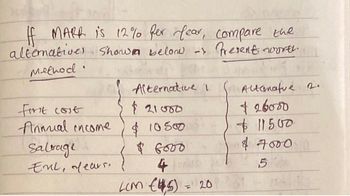 If MARR is 12% per year, compare the
alternatives shown below -> Present worth
Method.
Alternative 1 Alternative 2.
First cost $ 21000 $ 26000
Annual income $ 10500 $ 11500
Salvage $ 6000 $ 7000
EUL, years. 4 5
LCM (4,5) = 20